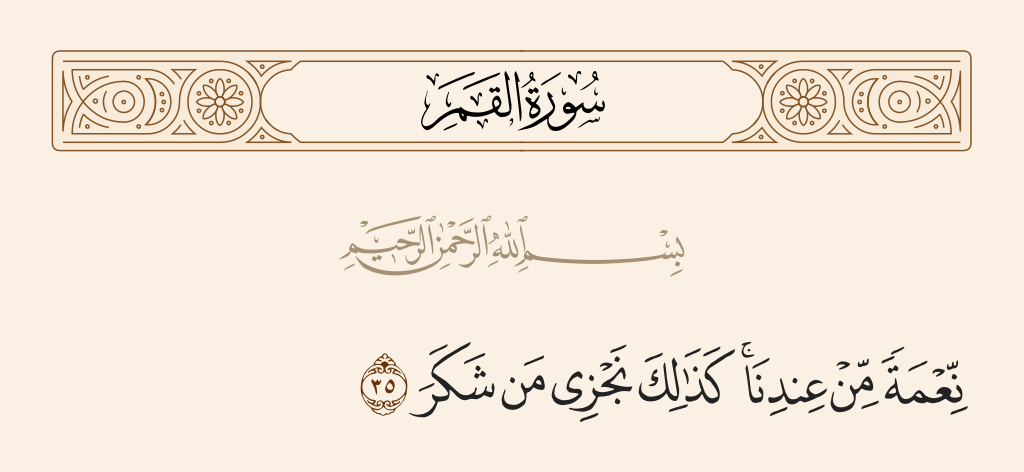 سُورَةُ القَمَرِ
بِسْمِ ٱللَّهِ ٱلرَّحْمَٰنِ ٱلرَّحِيمِ
نِّعْمَةً مِّنْ عِندِنَا ۚ كَذَٰلِكَ نَجْزِى مَن شَكَرَ ٣٥